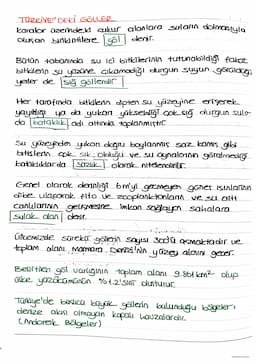 TÜRKİYE'DEKİ GÖLLER
karalar üzerindeki çukur alanlara suların dolmasıyla
oluşan birikintilere göl denir.
Bütün tabanında su içi bitkilerinin tutunabildiği fakat
bitkilerin su yüzüne çıkamadığı durgun suyun görüldüğü
yerler de sığ göllerdir.
Her tarafında bitkilerin dipten su yüzeyine erişerek
yayıldığı ya da yukarı yükseldiği çok sığ durgun sular
da bataklık adı altında toplanmıştır.
Su yüzeyinden yukarı doğru boylanmış saz kamış gibi
bitkilerin çok sık olduğu ve su aynalarının görülmediği
bataklıklarda sazlık olarak nitelendirilir.
Genel olarak derinliği 6m'yi geçmeyen güneş ışınlarının
dibe ulaşarak fito ve zooplanktonların ve su altı
canlılarının gelişmesine imkan sağlayan sahalara
sulak alan denir.
Ülkemizde sürekli göllerin sayısı 300'ü aşmaktadır ve
toplam alanı Marmara Denizi'nin yüzey alanını geçer.
Belirtilen göl varlığının toplam alanı km² olup
ülke yüzölçümünün oluşturur.
Türkiye'de başlıca büyük göllerin bulunduğu bölgeler
denize akışı olmayan kapalı havzalardır.
(Endoreik Bölgeler)